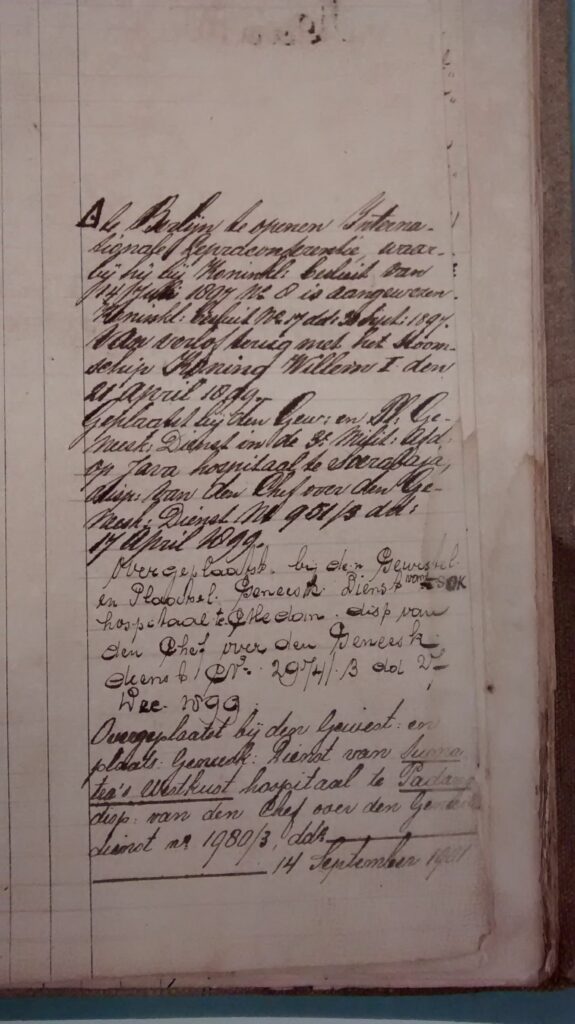 A
te Berlijn te openen Interna-
tionale Lepraconferentie, waar-
bij hij bij Koninkl: besluit van
14 Juli 1897 No 8 is aangewezen.
Koninkl: besluit No 17 dd: Sept: 1897.
Van verlof terug met het Stoom-
schip Koning Willem I den
21 April 1899.
Geplaatst bij den Gew: en Pl: Ge-
neesk: Dienst in de 3e Milit: Afd:
op Java hospitaal te Soerabaja,
disp: van den Chef over den Ge-
neesk: Dienst No 951/3 dd:
17 April 1899.
Overgeplaatst bij den Gewestel.
en Plaatsel. Geneesk Dienst van SOK
hospitaal te Medan disp van
den Chef over den Geneesk
dienst No 2974/3 dd
Dec. 1899.
Overgeplaatst bij den Gewest: en
plaats: Geneesk: Dienst van Suma-
tra's Westkust hospitaal te Padang
disp: van den Chef over den Geneesk
dienst no 1980/3, dd
14 September 1901